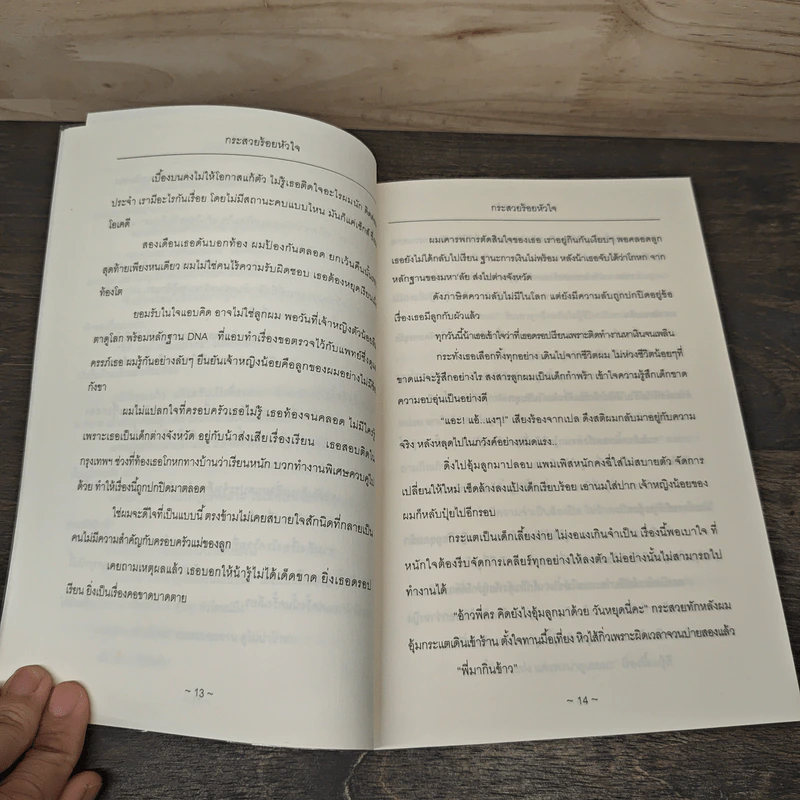 กระสวยร้อยหัวใจ
เบื้องบนคงไม่ให้โอกาสแก้ตัว ไม่รู้เธอติดใจอะไรผมนัก
ประจำ เรามีอะไรกันเรื่อย โดยไม่มีสถานะคบแบบไหน มันก็แค่เซ็กส์
โอเคดี
สองเดือนเธอดันบอกท้อง ผมป้องกันตลอด ยกเว้นคืนนั้น
สุดท้ายเพียงหนเดียว ผมไม่ใช่คนไร้ความรับผิดชอบ เธอต้องหยุดเรียน
ท้องโต
ยอมรับในใจแอบคิด อาจไม่ใช่ลูกผม พอวันที่เจ้าหญิงตัวน้อย
ตาดูโลก พร้อมหลักฐาน DNA ที่แอบทำเรื่องขอตรวจไว้กับแพทย์ซึ่ง
ครรภ์เธอ ผมรู้กันอย่างลับๆ ยืนยันเจ้าหญิงน้อยคือลูกของผมอย่างไม่มี
กังขา
ผมไม่แปลกใจที่ครอบครัวเธอไม่รู้ เธอท้องจนคลอด ไม่มีใครรู้
เพราะเธอเป็นเด็กต่างจังหวัด อยู่กับน้าส่งเสียเรื่องเรียน เธอสอบติดใน
กรุงเทพฯ ช่วงที่ท้องเธอโกหกทางบ้านว่าเรียนหนัก บวกทำงานพิเศษควบคู่ไป
ด้วย ทำให้เรื่องนี้ถูกปกปิดมาตลอด
ใช่ผมจะดีใจที่เป็นแบบนี้ ตรงข้ามไม่เคยสบายใจสักนิดที่กลายเป็น
คนไม่มีความสำคัญกับครอบครัวแม่ของลูก
เคยถามเหตุผลแล้ว เธอบอกให้น้ารู้ไม่ได้เด็ดขาด ยิ่งเธอดรอป
เรียน ยิ่งเป็นเรื่องคอขาดบาดตาย
~ 13 ~
กระสวยร้อยหัวใจ
ผมเคารพการตัดสินใจของเธอ เราอยู่กินกันเงียบๆ พอคลอดลูก
เธอยังไม่ได้กลับไปเรียน ฐานะการเงินไม่พร้อม หลังน้าเธอจับได้ว่าโกหก จาก
หลักฐานของมหา'ลัย ส่งไปต่างจังหวัด
ดังภาษิตความลับไม่มีในโลก แต่ยังมีความลับถูกปกปิดอยู่คือ
เรื่องเธอมีลูกกับผัวแล้ว
ทุกวันนี้น้าเธอเข้าใจว่าที่เธอดรอปเรียนเพราะติดทำงานหาเงินจนเพลิน
กระทั่งเธอเลือกทิ้งทุกอย่าง เดินไปจากชีวิตผม ไม่ห่วงชีวิตน้อยๆที่
ขาดแม่จะรู้สึกอย่างไร สงสารลูกผมเป็นเด็กกำพร้า เข้าใจความรู้สึกเด็กขาด
ความอบอุ่นเป็นอย่างดี
“แอะ! แอ้..แงๆ!” เสียงร้องจากเปล ดึงสติผมกลับมาอยู่กับความ
จริง หลังหลุดไปในภวังค์อย่างหมดแรง..
ดิ่งไปอุ้มลูกมาปลอบ แพมเพิสหนักคงฉี่ใส่ไม่สบายตัว จัดการ
เปลี่ยนให้ใหม่ เช็ดล้างลงแป้งเด็กเรียบร้อย เอานมใส่ปาก เจ้าหญิงน้อยของ
ผมก็หลับปุ๋ยไปอีกรอบ
กระแตเป็นเด็กเลี้ยงง่าย ไม่งอแงเกินจำเป็น เรื่องนี้พอเบาใจ ที่
หนักใจต้องรีบจัดการเคลียร์ทุกอย่างให้ลงตัว ไม่อย่างนั้นไม่สามารถไป
ทำงานได้
“อ้าวพี่คร คิดยังไงอุ้มลูกมาด้วย วันหยุดนี่คะ” กระสวยทักหลังผม
อุ้มกระแตเดินเข้าร้าน ตั้งใจทานมื้อเที่ยง หิวไส้กิ่วเพราะผิดเวลาจวนบ่ายสองแล้ว
“พี่มากินข้าว”
~ 14 ~